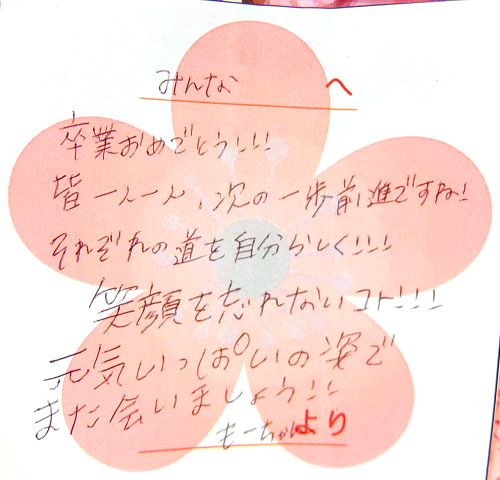 みんな へ
卒業おめでとう!!!
皆一人一人、次の一歩前進ですね!
それぞれの道を自分らしく!!!
笑顔を忘れないコト!!!
元気いっぱいの姿で
また会いましょう!!
もーちゃんより